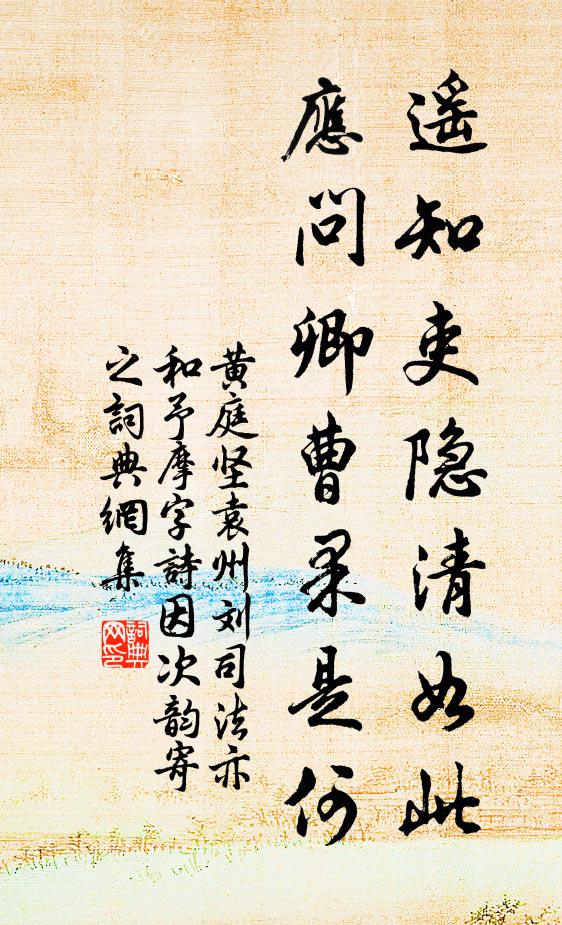 遥知吏隐清如此
應問卿曹果是何
黄庭坚袁州刘司法亦
和予摩字詩因次韵寄
之詞典網集
詞典網印